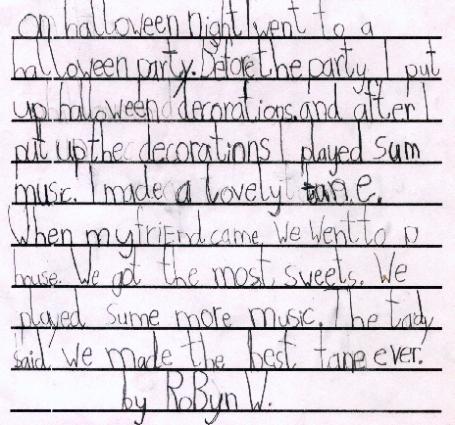 on halloween night I went to a
halloween party. Before the party I put
up halloween decorations. and after I
put up the decorations I played sum
music. I made a lovely tane.
When my friEnd came. We went to a
house. We got the most sweets. We
played sume more music. The lady
said we made the best tane ever.
by RoByn W.